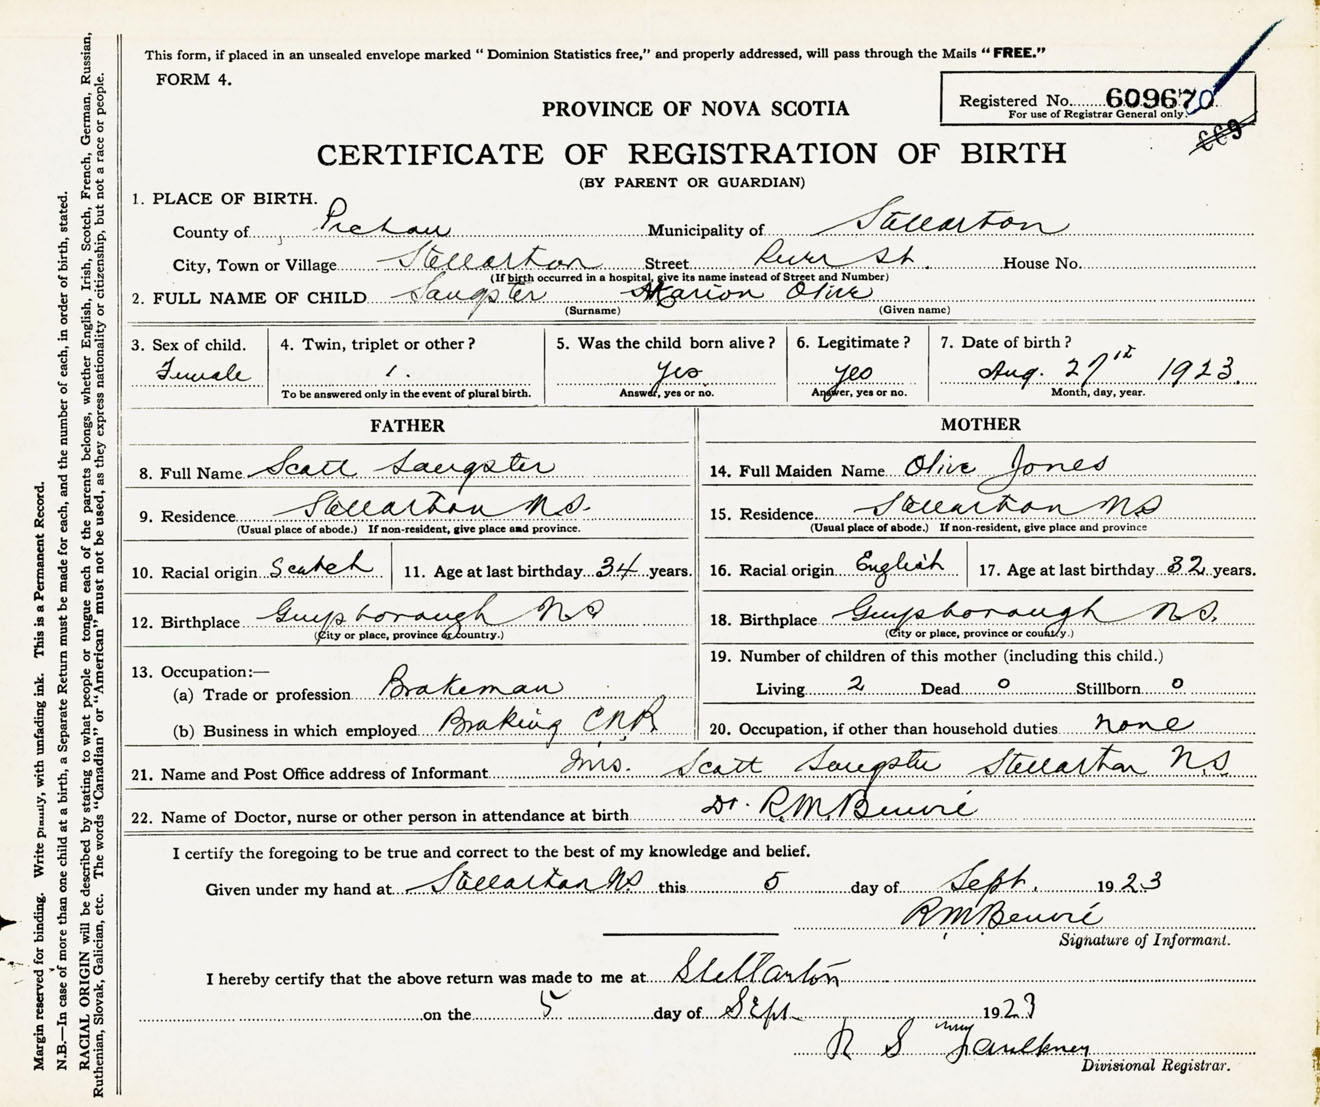 This form, if placed in an unsealed envelope marked “Dominion Statistics free,” and properly addressed, will pass through the Mails “FREE.”
FORM 4.
Registered No. 609670
For use of Registrar General only.
669
PROVINCE OF NOVA SCOTIA
CERTIFICATE OF REGISTRATION OF BIRTH
(BY PARENT OR GUARDIAN)
1. PLACE OF BIRTH.
County of Pictou Municipality of Stellarton
City, Town or Village Stellarton Street River St. House No.
(If birth occurred in a hospital, give its name instead of Street and Number)
2. FULL NAME OF CHILD Sangster Marion Olive
(Surname) (Given name)
3. Sex of child. 4. Twin, triplet or other? 5. Was the child born alive? 6. Legitimate? 7. Date of birth?
Female 1. Yes Yes Aug. 27th 1923.
To be answered only in the event of plural birth. Answer, yes or no. Answer, yes or no. Month, day, year.
FATHER
8. Full Name Scott Sangster
9. Residence Stellarton N.S.
(Usual place of abode.) If non-resident, give place and province.
10. Racial origin Scotch 11. Age at last birthday 34 years.
12. Birthplace Guysborough NS
(City or place, province or country.)
13. Occupation:—
(a) Trade or profession Brakeman
(b) Business in which employed Braking CNR
MOTHER
14. Full Maiden Name Olive Jones
15. Residence Stellarton NS
(Usual place of abode.) If non-resident, give place and province
16. Racial origin English 17. Age at last birthday 32 years.
18. Birthplace Guysborough NS.
(City or place, province or country.)
19. Number of children of this mother (including this child.)
Living 2 Dead 0 Stillborn 0
20. Occupation, if other than household duties none
21. Name and Post Office address of Informant Mrs. Scott Sangster Stellarton N.S
22. Name of Doctor, nurse or other person in attendance at birth Dr. R.M. Benvié
I certify the foregoing to be true and correct to the best of my knowledge and belief.
Given under my hand at Stellarton NS this 5 day of Sept. 1923
RM Benvié
Signature of Informant.
I hereby certify that the above return was made to me at Stellarton
on the 5 day of Sept 1923
R S Faulkner
Divisional Registrar.
Margin reserved for binding. Write plainly, with unfading ink. This is a Permanent Record.
N.B.—In case of more than one child at a birth, a Separate Return must be made for each, and the number of each, in order of birth, stated.
RACIAL ORIGIN will be described by stating to what people or tongue each of the parents belongs, whether English, Irish, Scotch, French, German, Russian,
Ruthenian, Slovak, Galician, etc. The words “Canadian” or “American” must not be used, as they express nationality or citizenship, but not a race or people.